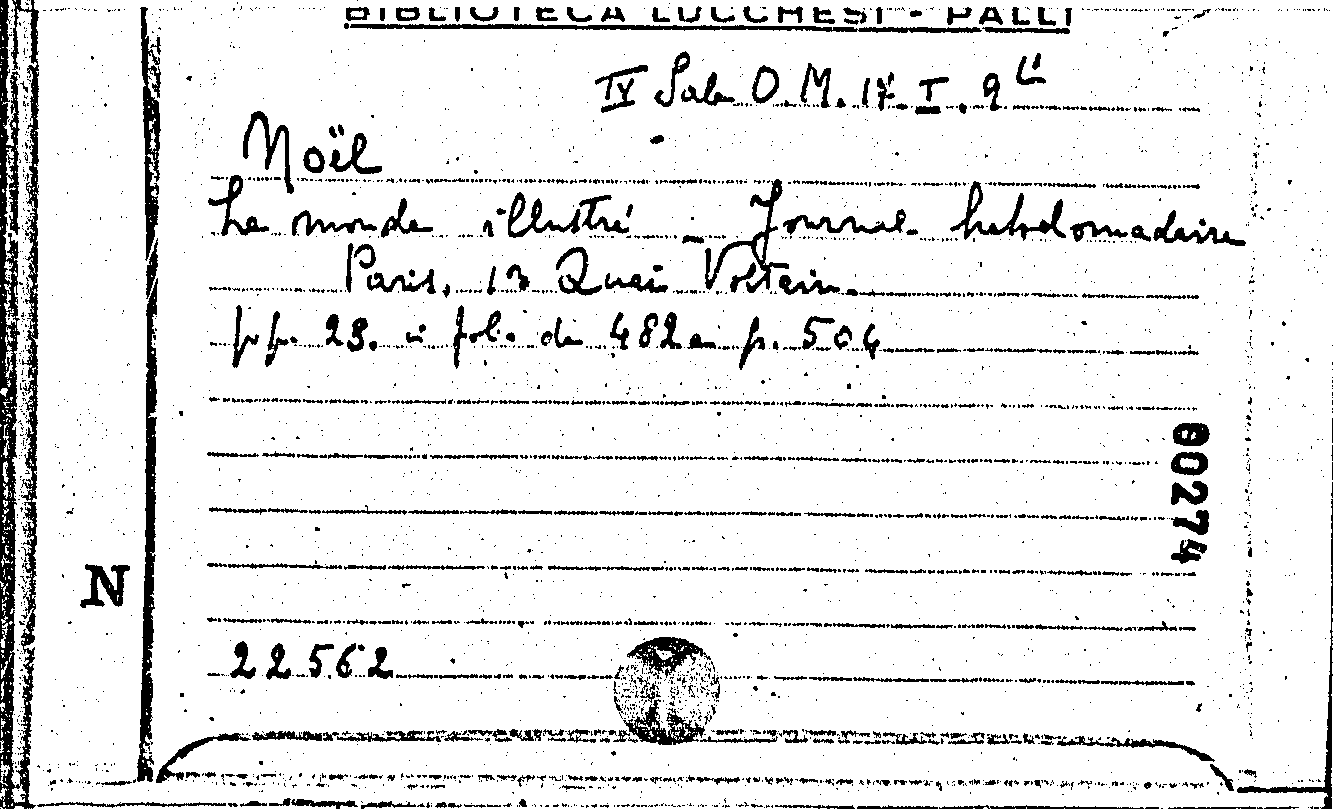 BIBLIOTECA LUCCHESI - PALLI
IV Sala O. M. 17. I. 9
Noël
Le monde illustré - Journal hebdomadaire
Paris, 13 Quai Voltaire.
pp. 23. in fol. da 482 a p. 504
00274
N
22562